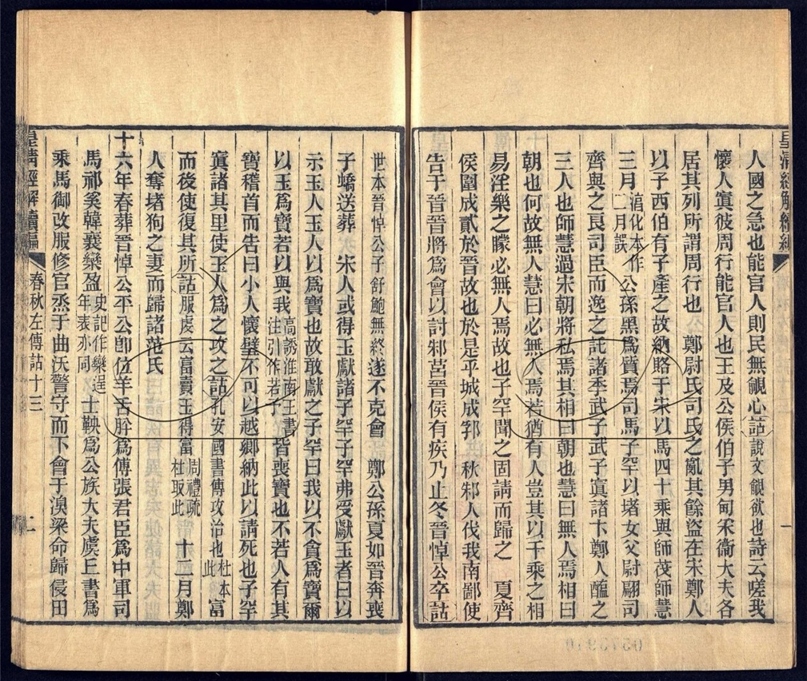 皇清經解續編
人國之急也能官人則民無覦心詁說文覦欲也詩云嗟我
懷人寘彼周行能官人也王及公侯伯子男甸采衞大夫各
居其列所謂周行也　鄭尉氏司氏之亂其餘盜在宋鄭人
以子西伯有子產之故納賂于宋以馬四十乘與師茷師慧
三月淳化本作二月誤公孫黑爲質焉司馬子罕以堵女父尉翩司
齊與之良司臣而逸之託諸季武子武子寘諸卞鄭人醢之
三人也師慧過宋朝將私焉其相曰朝也慧曰無人焉相曰
朝也何故無人慧曰必無人焉若猶有人豈其以千乘之相
易淫樂之矇必無人焉故也子罕聞之固請而歸之　夏齊
侯圍成貳於晉故也於是乎城成郛　秋邾人伐我南鄙使
告于晉晉將爲會以討邾莒晉侯有疾乃止冬晉悼公卒詁
世本晉悼公子舒鮑無終遂不克會　鄭公孫夏如晉奔喪
子蟜送葬　宋人或得玉獻諸子罕子罕弗受獻玉者曰以
示玉人玉人以爲寶也故敢獻之子罕曰我以不貪爲寶爾
以玉爲寶若以與我高誘淮南王書注引作若予我皆喪寶也不若人有其
寶稽首而告曰小人懷璧不可以越鄉納此以請死也子罕
寘諸其里使玉人爲之攻之詁孔安國書傳攻治也杜本此富
而後使復其所詁服虔云富賣玉得富周禮疏杜取此十二月鄭
人奪堵狗之妻而歸諸范氏
十六年春葬晉悼公平公卽位羊舌肸爲傅張君臣爲中軍司
馬祁奚韓襄欒盈史記作欒逞年表亦同士鞅爲公族大夫虞丘書爲
乘馬御改服修官烝于曲沃警守而下會于湨梁命歸侵田
皇清經解續編　春秋左傳詁十三　二